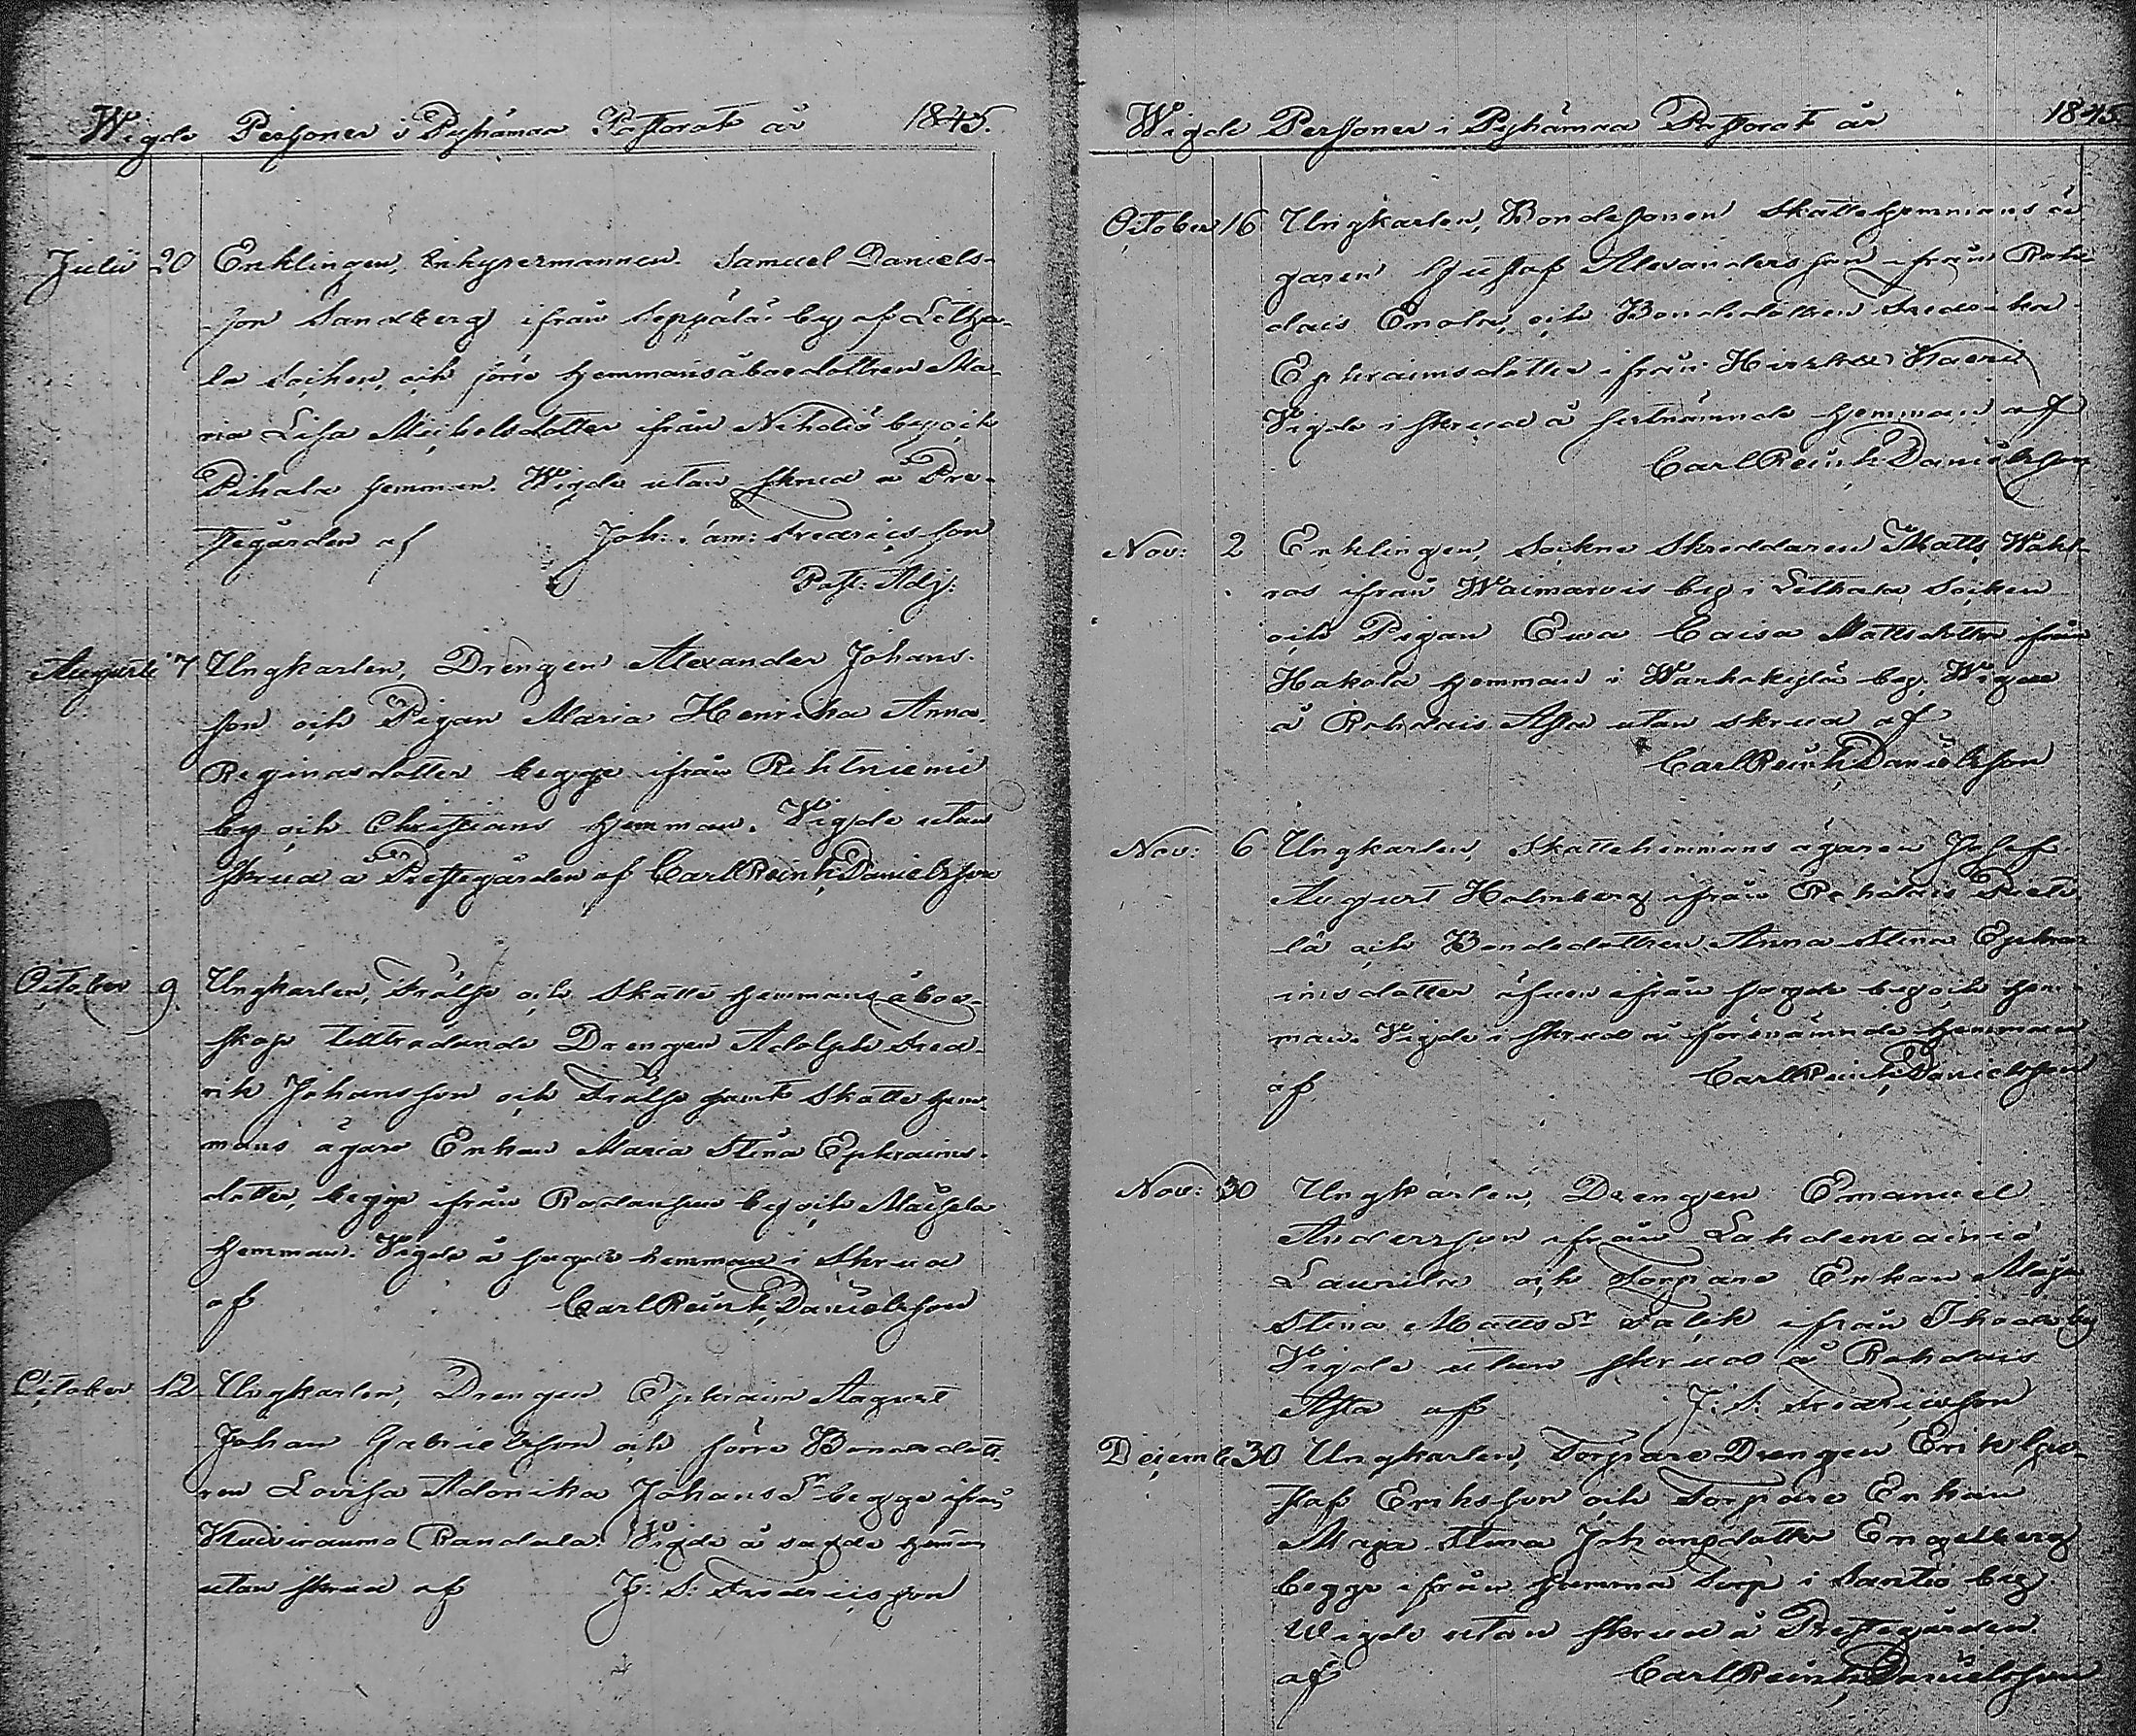 Wigde Personer i Pyhämaa Pastorat år 1845.
Julii 20 Enklingen, Inhysesmannen Samuel Daniels-
son Sandberg ifrån Seppälä by af Letha-
la Socken, och förre Hemmansåboedottren Ma-
ria Lisa Michelsdotter ifrån Nihdiö by och
Pihala hemman. Wigde utan skrud å Pre-
stegården af Joh: Sam: Fredricsson
Past: Adj:
Augusti 7 Ungkarlen, Drengen Alexander Johans-
son och Pigan Maria Henrika Anna
Reginasdotter begge ifrån Rihtniemi
by och Christians hemman. Vigde utan
skrud å Prestegården af Carl Reinh. Danielsson
October 9 Ungkarlen, Frälse och Skatte hemmans åboe-
skap tillträdande Drengen Adolph Fred-
rik Johansson och Frälse samt Skatte hem-
mans ägare Enkan Maria Stina Ephraims-
dotter, begge ifrån by och
hemman. Vigde å sagde hemman i Skrud
af Carl Reinh. Danielsson
October 12 Ungkarlen, Drengen Ephraim August
Johan Gabrielsson och förre Bondedott-
ren Lovisa Adonika Johansdr begge ifrån
Kuiviraumo Randala. Vigde å sagde hemān
utan skrud af J: S: Fredricsson
Wigde Personer i Pyhämaa Pastorat år 1845
October 16 Ungkarlen, Bondesonen Skattehemmans ä-
garen Gustaf Alexandersson ifrån Roh-
dais Enola, och Bondedottren Fredrika
Ephraimsdotter ifrån Kaeni
Vigde i skrud å hemman af
Carl Reinh. Danielsson
Nov: 2 Enklingen, Sockne Skreddaren Matts Wahl-
ros ifrån Waimarois by i Lethala Socken
och Pigan Ewa Caisa Mattsdotter ifrån
Hakola hemman i Warhokylä by. Wigde
å Rohdais Asta utan skrud af
Carl Reinh. Danielsson
Nov: 6 Ungkarlen, Skattehemmans ägaren Josef
August Holmberg ifrån Rohdais Pieti-
lä och Bondedottren Anna Stina Ephra-
imsdotter äfven ifrån sagde by och hem-
man. Vigde i skrud å förenämnde hemman
af Carl Reinh. Danielsson
Nov: 30 Ungkarlen, Drengen Emanuel
Andersson ifrån Lahdenvainio
Laurila och Torpare Enkan Maja
Stina Mattsdr Falck ifrån Ihoda by
Vigde utan skrud å Rohdais
Asta af J: S: Fredricsson
Decemb 30 Ungkarlen, Torpare Drengen Erik Gu-
staf Eriksson och Torpare Enkan
Maja Stina Johansdotter Engelberg
begge ifrån samma Torp i Santio by
Wigde utan skrud å Prestegården
af Carl Reinh. Danielsson